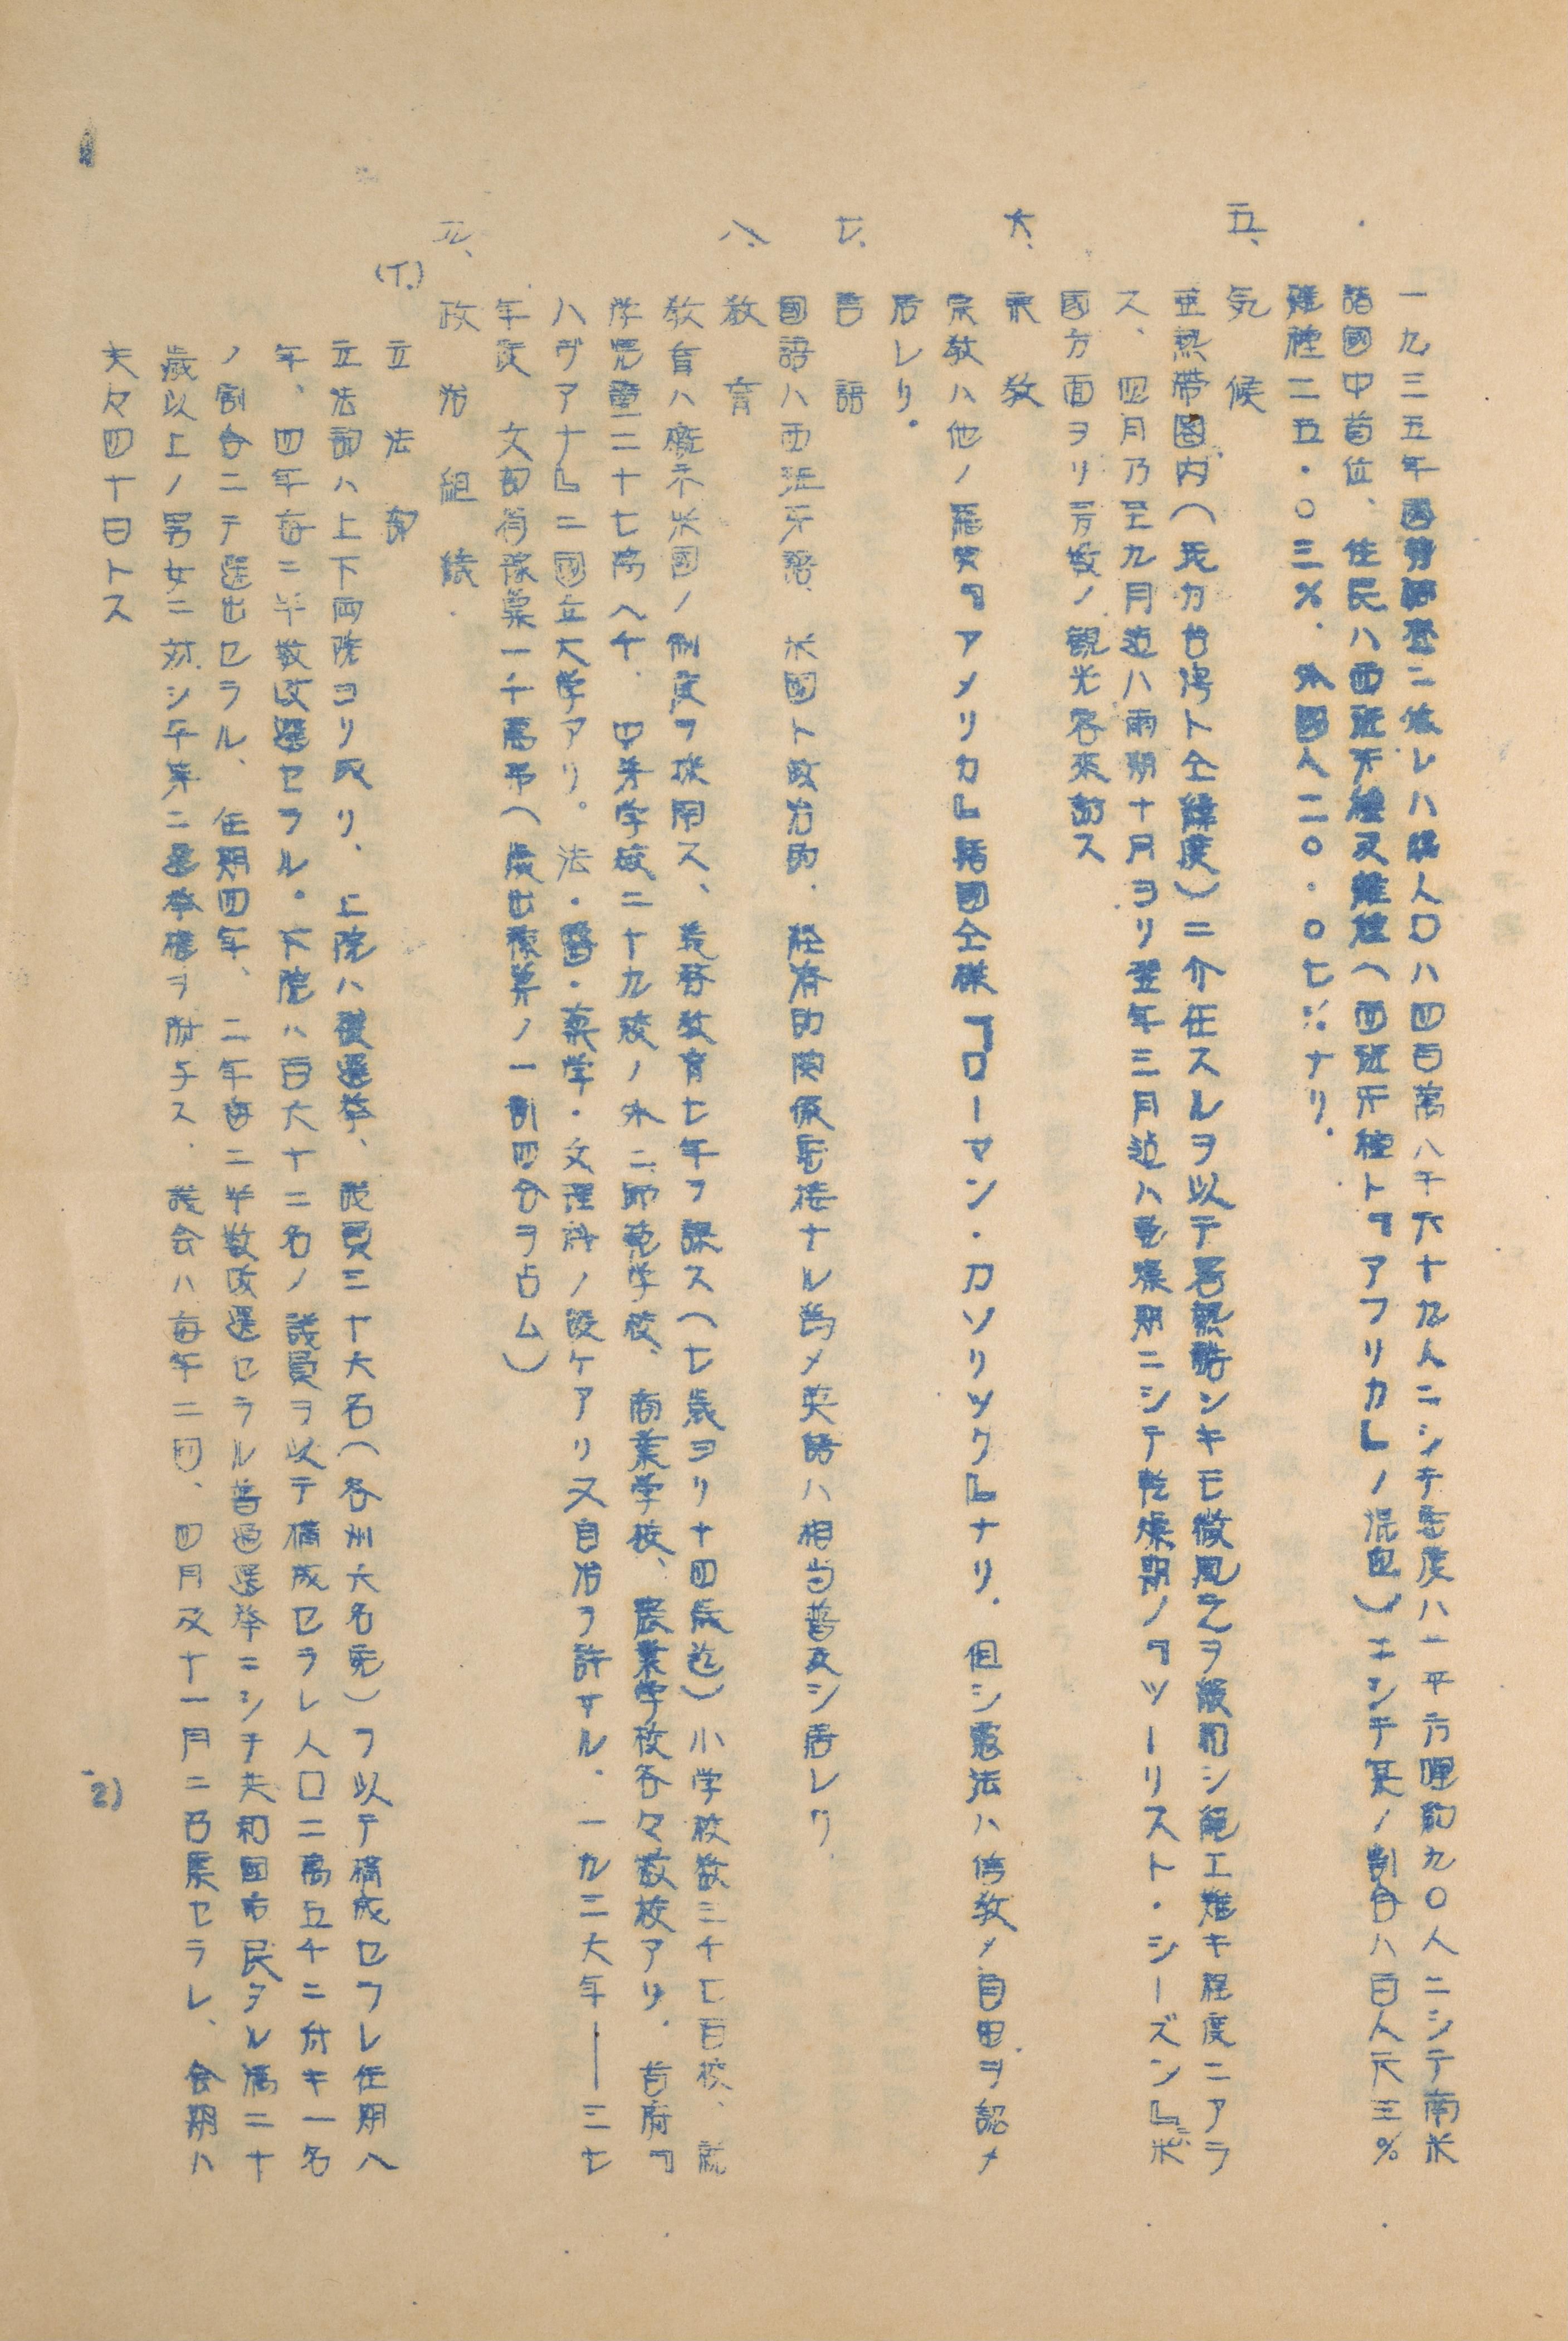 一九三五年国勢調査ニ依レハ総人口ハ四百萬八千六十九人ニシテ密度ハ一平方哩約九〇人ニシテ南米
諸國中首位、住民ハ西班牙種及雑種(西班牙種ト『アフリカ』ノ混血)ニシテ其ノ割合ハ百人六三%
雑種二五・〇三%.外國人二〇.〇七%ナリ.
五、気候
亜熱帯圏内(死カ台湾ト仝緯度)ニ介在スルヲ以テ暑熱酷シキモ微風之ヲ緩和シ絶エ難キ程度ニアラ
ス、四月乃至九月迄ハ雨期十月ヨリ翌年三月迄ハ乾燥期ニシテ乾燥期ノ『ツーリスト・シーズン』米
國方面ヨリ多数ノ観光客来訪ス
六、宗教
宗教ハ他ノ羅典『アメリカ』諸國仝様『ローマン・カソリック』ナリ.但シ憲法ハ信教ノ自由ヲ認メ
居レリ.
七、言語
國語ハ西班牙語、米國ト政治的.経済的関係密接ナル為メ英語ハ相当普及シ居レリ.
八、教育
教育ハ概ネ米國ノ制度ヲ採用ス、義務教育七年ヲ課ス(七歳ヨリ十四歳迄)小学校数三千七百校、就
学児童二十七萬八千.中等学校二十九校ノ外ニ師範学校、商業学校、農業学校各々数校アリ.首府『
ハヴアナ』ニ國立大学アリ。法・醫・薬学・文理科ノ設ケアリ又自治ヲ許サル.一九三六年――三七
年度 文部省豫算一千萬弗(歳出豫算ノ一割四分ヲ占ム)
九、政治組織.
(イ.)立法部
立法部ハ上下両院ヨリ成リ、上院ハ複選挙、議員三十六名(各州六名宛)ヲ以テ構成セラレ任期八
年、四年毎ニ半数改選セラル.下院ハ百六十二名ノ議員ヲ以テ構成セラレ人口二萬五千ニ付キ一名
ノ割合ニテ選出セラル、任期四年、二年毎ニ半数改選セラル普通選挙ニシテ共和国市民タル満二十
歳以上ノ男女ニ対シ平等ニ選挙権ヲ附与ス.議会ハ毎年二回、四月及十一月ニ召集セラレ、会期ハ
夫々四十日トス
2)